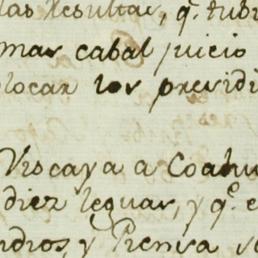 las Resultas, q.e tubi
mas cabal juicio
locar los presidi
Viscaya a Coahu
diez leguas, y q.e e
ndios, y Piensa se